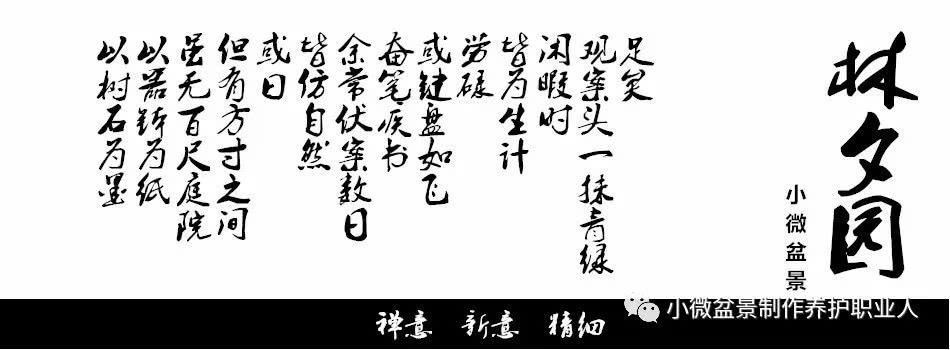 林夕园
小微盆景
以树石为墨
以器钵为纸
虽无百尺庭院
但有方寸之间
或曰
皆仿自然
余常伏案数日
奋笔疾书
或键盘如飞
劳碌
皆为生计
闲暇时
观案头一抹青绿
足矣
禅意 新意 精细
小微盆景制作养护职业人